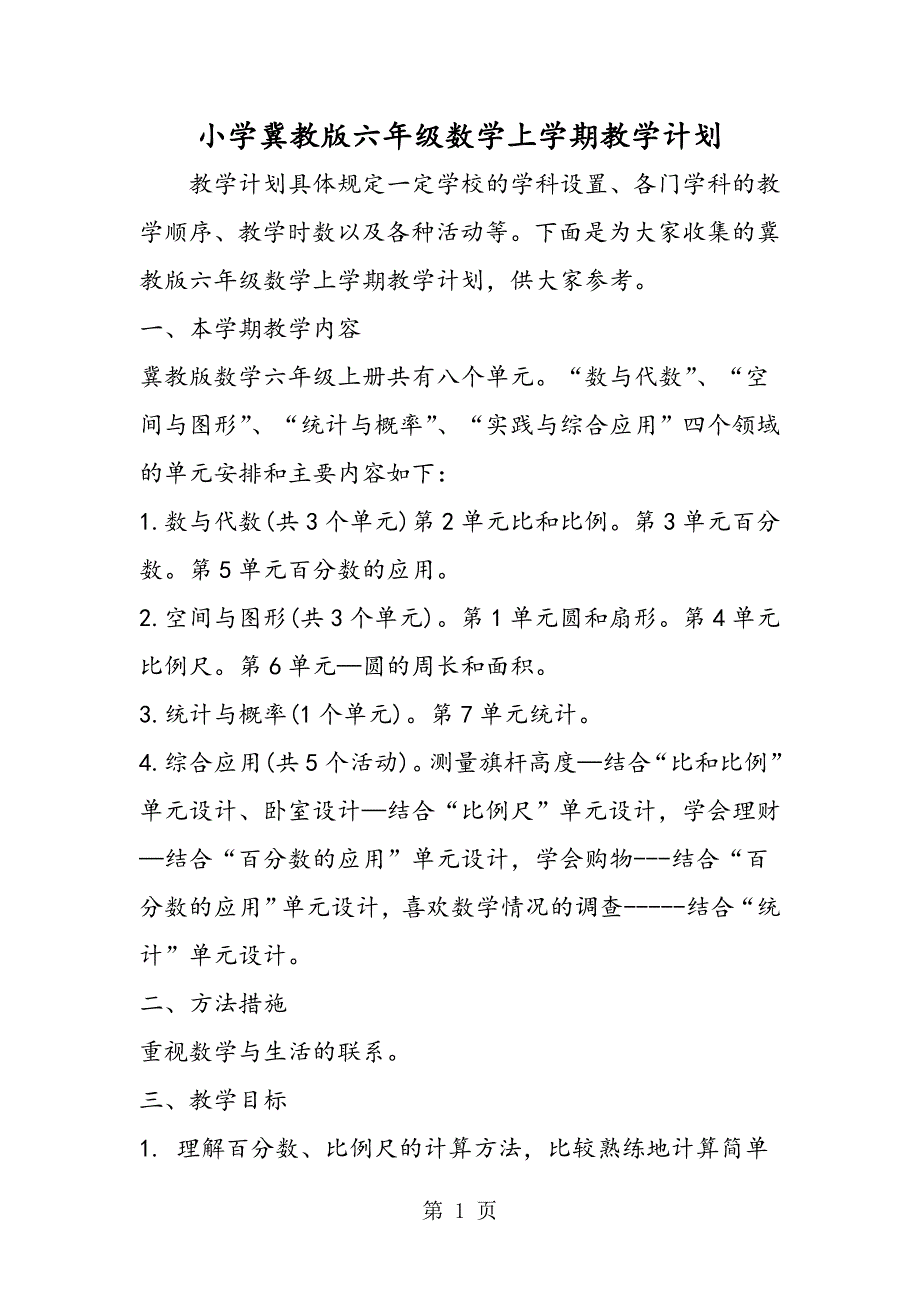 小学冀教版六年级数学上学期教学计划
教学计划具体规定一定学校的学科设置、各门学科的教
学顺序、教学时数以及各种活动等。下面是为大家收集的冀
教版六年级数学上学期教学计划，供大家参考。
一、本学期教学内容
冀教版数学六年级上册共有八个单元。“数与代数”、“空
间与图形”、“统计与概率”、“实践与综合应用”四个领域
的单元安排和主要内容如下：
1.数与代数(共3个单元)第2单元比和比例。第3单元百分
数。第5单元百分数的应用。
2.空间与图形(共3个单元)。第1单元圆和扇形。第4单元
比例尺。第6单元—圆的周长和面积。
3.统计与概率(1个单元)。第7单元统计。
4.综合应用(共5个活动)。测量旗杆高度—结合“比和比例”
单元设计、卧室设计—结合“比例尺”单元设计，学会理财
—结合“百分数的应用”单元设计，学会购物---结合“百
分数的应用”单元设计，喜欢数学情况的调查-----结合“统
计”单元设计。
二、方法措施
重视数学与生活的联系。
三、教学目标
1. 理解百分数、比例尺的计算方法，比较熟练地计算简单
第 1 页